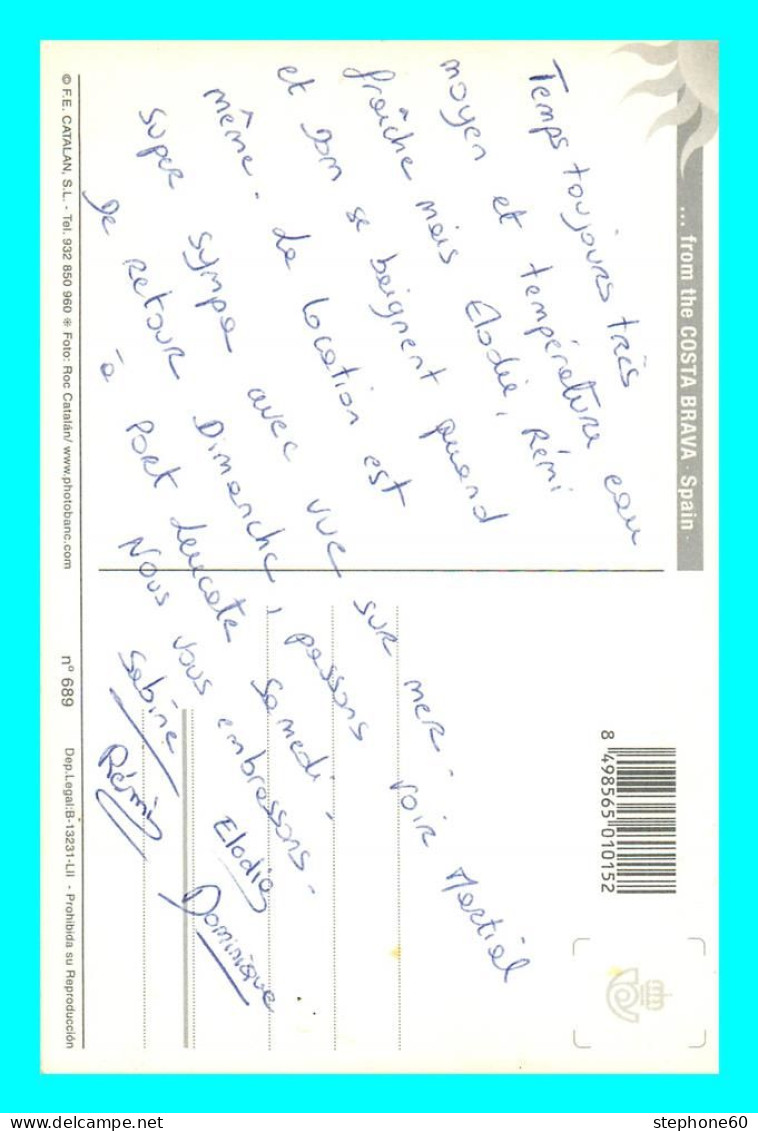 ... from the COSTA BRAVA · Spain ·
Temps toujours très
moyen et température eau
fraîche mais Elodie, Rémi
et Dom se baignent quand
même. La location est
super sympa avec vue sur mer.
De retour Dimanche, passons voir Martial
à Port Leucate Samedi.
Nous vous embrassons.
Sabine
Elodie
Rémi
Dominique
8 498565 010152
© F.E. CATALAN, S.L. - Tel. 932 850 960 ☀ Foto: Roc Catalán/ www.photobanc.com
n° 689
Dep.Legal:B-13231-LII - Prohibida su Reproducción
stephone60